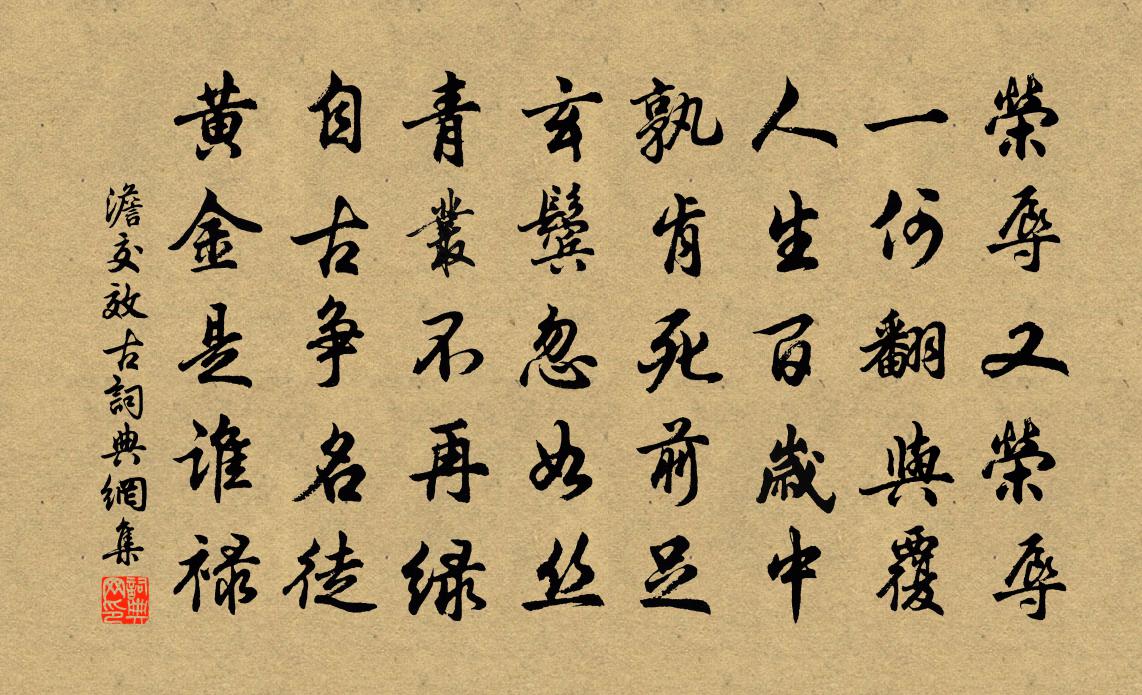 榮辱又榮辱
一何翻與覆
人生百歲中
孰肯死前足
玄鬢忽如絲
青叢不再綠
自古争名徒
黄金是谁禄
澹交效古詞典網集
詞典网印